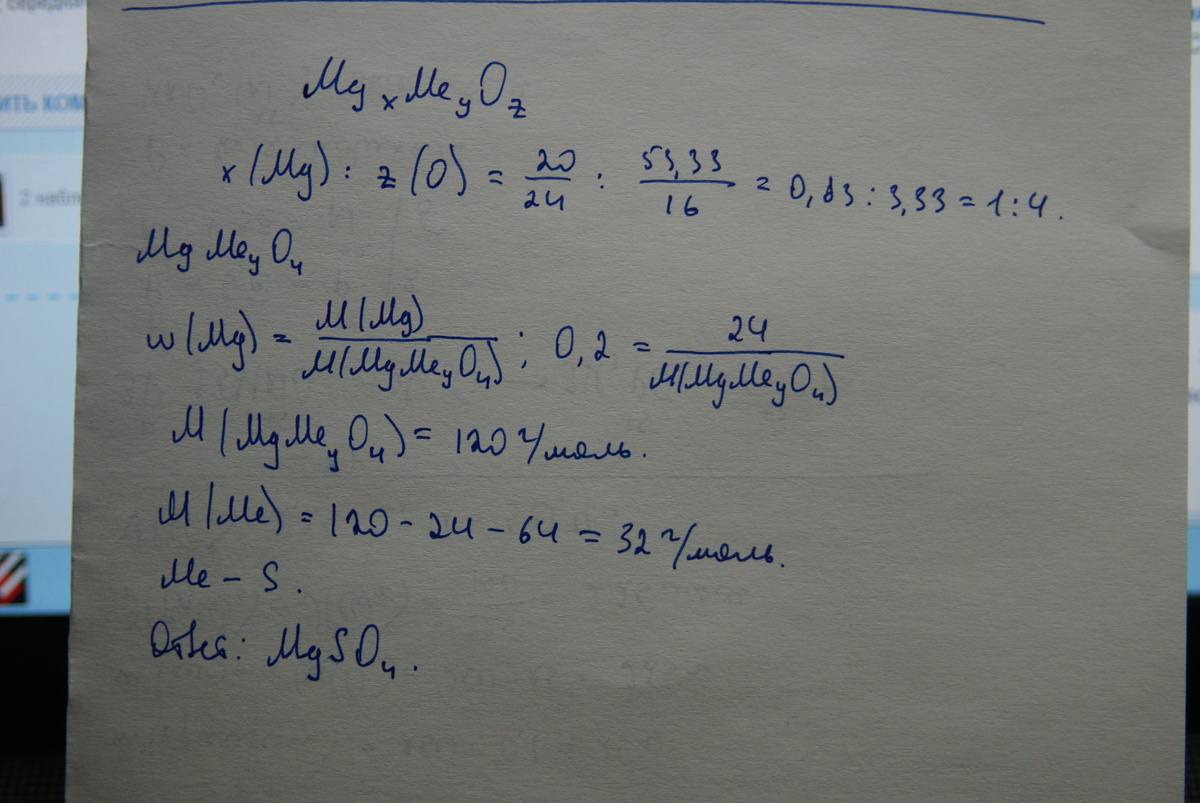 середин
ИТЬ КОМ
2 набл
Mg x Me y O z
x(Mg) : z(O) = 20/24 : 53,33/16 = 0,83 : 3,33 = 1:4.
Mg Me y O 4
w(Mg) = M(Mg)/M(MgMe y O 4) ; 0,2 = 24/M(MgMe y O 4)
M(MgMe y O 4) = 120 г/моль.
M(Me) = 120 - 24 - 64 = 32 г/моль.
Me - S.
Ответ: MgSO4.